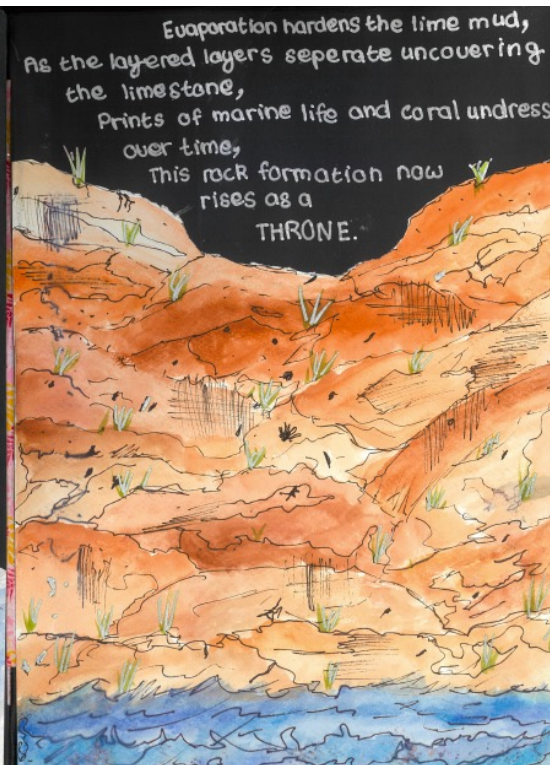 Evaporation hardens the lime mud,
As the layered layers seperate uncovering
the limestone,
Prints of marine life and coral undress
over time,
This rock formation now
rises as a
THRONE.